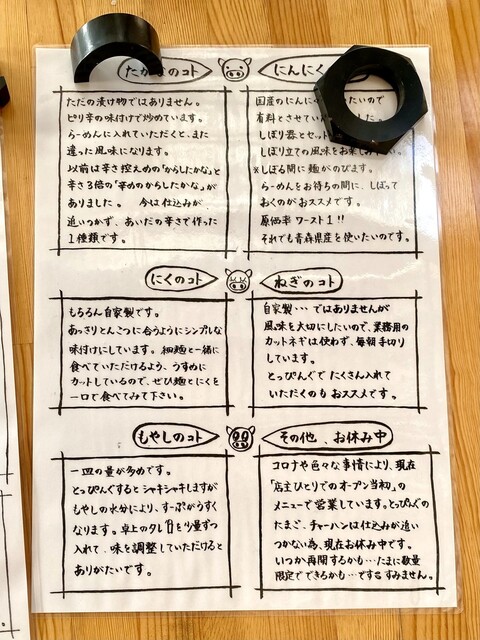 たかなのコト
ただの漬け物ではありません。
ピリ辛の味付けで炒めています。
らーめんに入れていただくと、また
違った風味になります。
以前は辛さ控えめの「からしたかな」と
辛さ3倍の「辛めのからしたかな」が
ありました。 今は仕込みが、
追いつかず、あいだの辛さで作った
1種類です。
にんにく
国産のにんに たいので
有料とさせてい した。
しぼり器とセット
しぼり立ての風味をお楽しみ
※しぼる間に麺がのびます。
らーめんをお待ちの間に、しぼって
おくのがおススメです。
原価率ワースト1!!
それでも青森県産を使いたいのです。
にくのコト
もちろん自家製です。
あっさりとんこつに合うようにシンプルな
味付けにしています。細麺と一緒に
食べていただけるよう、うすめに
カットしているので、ぜひ麺とにくを
一口で食べてみて下さい。
ねぎのコト
自家製…ではありませんが
風味を大切にしたいので、業務用の
カットネギは使わず、毎朝手切り
しています。
とっぴんぐで たくさん入れて
いただくのも おススメです。
もやしのコト
一皿の量が多めです。
とっぴんぐすると シャキシャキしますが
もやしの水分により、すーぷがうすく
なります。卓上のタレを少量ずつ
入れて、味を調整していただけると
ありがたいです。
その他、お休み中
コロナや色々な事情により、現在
「店主ひとりでのオープン当初」の
メニューで営業しています。とっぴんぐの
たまご、チャーハンは仕込みが追い
つかない為、現在お休み中です。
いつか再開するかも…たまに数量
限定でできるかも…です。すみません。